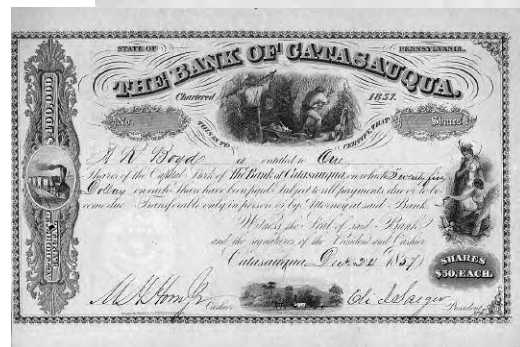 STATE OF PENNSYLVANIA.
THE BANK OF CATASAUQUA.
Chartered 1857.
No. Shares
THIS IS TO CERTIFY, THAT
A R Boyd is entitled to One
Shares of the Capital Stock of The Bank of Catasauqua, on which Twenty five
Dollars on each Share have been paid. Subject to all payments due or to be-
come due. Transferable only in person or by Attorney at said Bank.
Witness the Seal of said Bank
and the signatures of the President and Cashier.
Catasauqua, Dec 24 1857
SHARES
$50, EACH.
Cashier
President
CAPITAL
$400,000